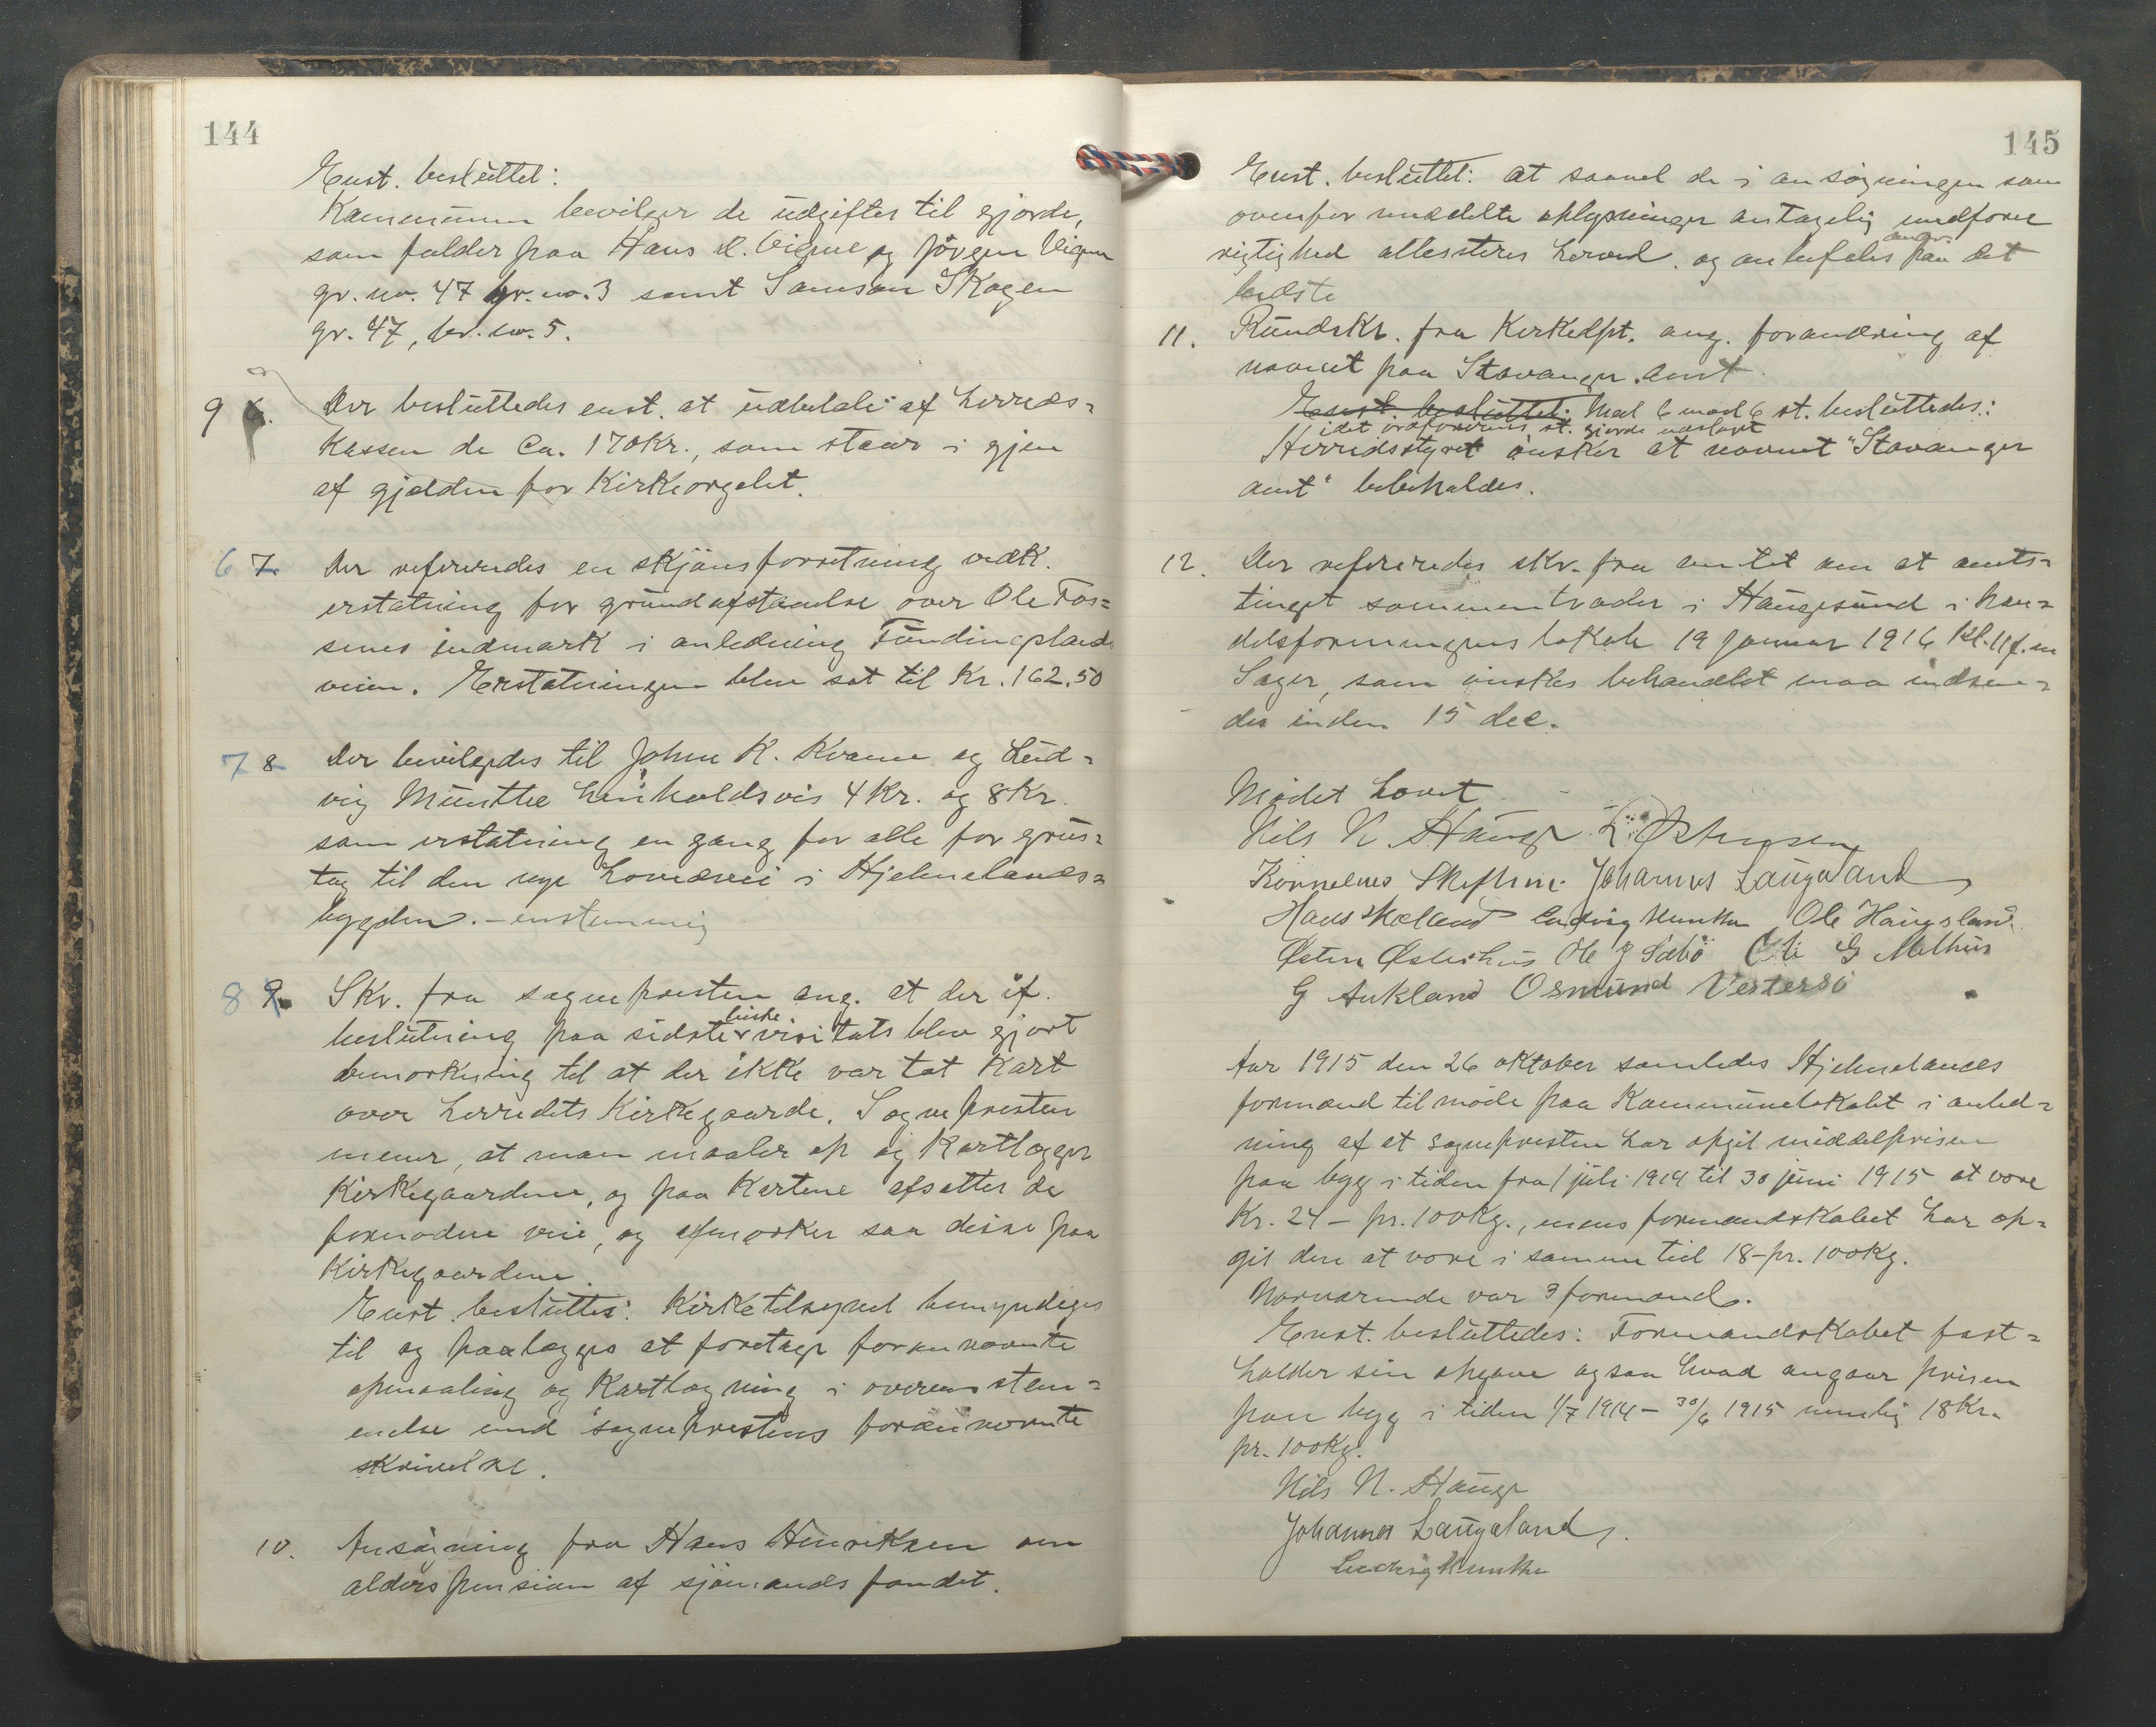 144
Enst. besluttet:
Kommunen bevilger de udgifter til gjerde,
som falder paa Hans H. Vigne og Jörgen Vigne
gr. no. 47 br. no. 3 samt Samson Skogen
gr. 47, br. no. 5.
9 6. Der besluttedes enst. at udbetale af herreds=
kassen de Ca. 170 kr., som staar i gjen
af gjælden for Kirkeorgelet.
6 7. Der refereredes en skjönsforretning vedk.
erstatning for grundafstaaelse over Ole Fos=
senes indmark i anledning Tündingslands
veien. Erstatningen blev sat til Kr. 162.50
7 8 Der bevilgedes til John K. Kvame og Lud=
vig Munthe henholdsvis 4 Kr. og 8 Kr.
som erstatning en gang for alle for grus=
tag til den nye hovedvei i Hjelmelands=
bygden. - enstemmig
8 9. Skr. fra sognepresten ang. at der if.
beslutning paa sidste bispevisitats blev gjort
bemerkning til at der ikke var tat Kart
over herredets Kirkegaarde. Sognepresten
mener, at man maaler op og Kartlægger
Kirkegaardene, og paa Kartene afsætter de
fornødne veie, og afmerker saa disse paa
Kirkegaardene.
Enst. besluttes: Kirketilsynet bemyndiges
til og paalægges at foretage forannævnte
opmaaling og Kartlægning i overensstem=
melse med sogneprestens forannævnte
skrivelse.
10. Ansøgning fra Hans Henriksen om
alderspension af sjömandsfondet.
145
Enst. besluttet: at saavel de i ansøgningen som
ovenfor meddelte oplysninger antagelig medfører
rigtighed attesteres herved. og anbefales andr. paa det
bedste
11. Rundskr. fra Kirkedpt. ang. forandring af
navnet paa Stavanger amt
Enst. besluttet: Med 6 mod 6 st. besluttedes:
idet ordførerens st. gjorde udslaget
Herredsstyret önsker at navnet "Stavanger
amt" bibeholdes.
12. Der refereredes skr. fra amtet om at amts=
tinget sammentræder i Haugesund i han=
delsforeningens lokale 19 januar 1916 Kl. 11 f. m
Sager, som önskes behandlet maa indsen=
des inden 15 dec.
Mødet hævet.
Nils N. Hauge L. Østensen
Kornelius Skiftun Johannes Laugaland
Hans Mælland Ludvig Munthe Ole Haugsland
Østen Østerhus Ole J Sæbö Ole G Melhus
G Aukland Osmund Vestersö
Aar 1915 den 26 oktober samledes Hjelmelands
formænd til møde paa Kommunelokalet i anled=
ning af at sognepresten har opgit middelprisen
paa byg i tiden fra 1 juli 1914 til 30 juni 1915 at være
Kr. 24 - pr. 100 Kg., mens formandskabet har op=
git den at være i samme tid 18 - pr. 100 Kg.
Nærværende var 3 formænd.
Enst. besluttedes: Formandskabet fast=
holder sin opgave ogsaa hvad angaar prisen
paa byg i tiden 1/7 1914 - 30/6 1915 nemlig 18 Kr.
pr. 100 Kg.
Nils N. Hauge
Johannes Laugaland.
Ludvig Munthe